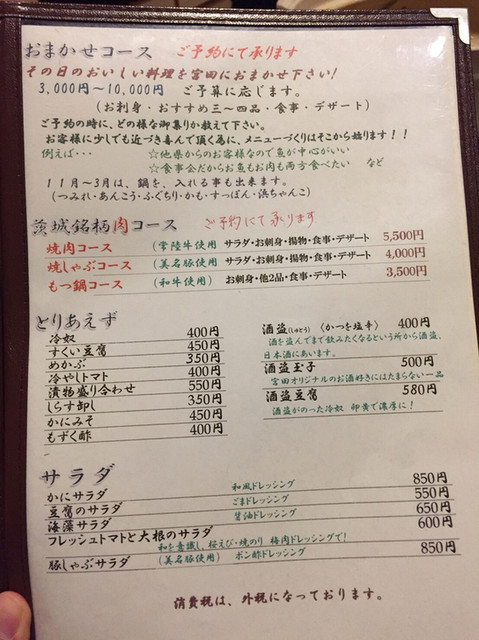 おまかせコース　ご予約にて承ります
その日のおいしい料理を宮田におまかせ下さい!
3,000円～10,000円　ご予算に応じます。
（お刺身・おすすめ三～四品・食事・デザート）
ご予約の時に、どの様な御集りか教えて下さい。
お客様に少しでも近づき喜んで頂く為に、メニューづくりはそこから始ります！！
例えば・・・　☆他県からのお客様なので魚が中心がいい
☆食事会だからお魚もお肉も両方食べたい　など
11月～3月は、鍋を、入れる事も出来ます。
（つみれ・あんこう・ふぐちり・かも・すっぽん・浜ちゃんこ）
茨城銘柄肉コース　ご予約にて承ります
焼肉コース　（常陸牛使用）　サラダ・お刺身・揚物・食事・デザート　5,500円
焼しゃぶコース　（美名豚使用）　サラダ・お刺身・揚物・食事・デザート　4,000円
もつ鍋コース　（和牛使用）　お刺身・他2品・食事・デザート　3,500円
とりあえず
冷奴　400円
すくい豆腐　450円
めかぶ　350円
冷やしトマト　400円
漬物盛り合わせ　550円
しらす卸し　350円
かにみそ　450円
もずく酢　400円
酒盗（しゅとう）〈かつを塩辛〉　400円
酒を盗んでまで飲みたくなるという所から酒盗。
日本酒にあいます。
酒盗玉子　500円
宮田オリジナルのお酒好きにはたまらない一品
酒盗豆腐　580円
酒盗がのった冷奴　卵黄で濃厚に！
サラダ
かにサラダ　和風ドレッシング　850円
豆腐のサラダ　ごまドレッシング　550円
海藻サラダ　醤油ドレッシング　650円
フレッシュトマトと大根のサラダ　600円
和を意識し、桜えび・焼のり　梅肉ドレッシングで！
豚しゃぶサラダ　（美名豚使用）　ポン酢ドレッシング　850円
消費税は、外税になっております。